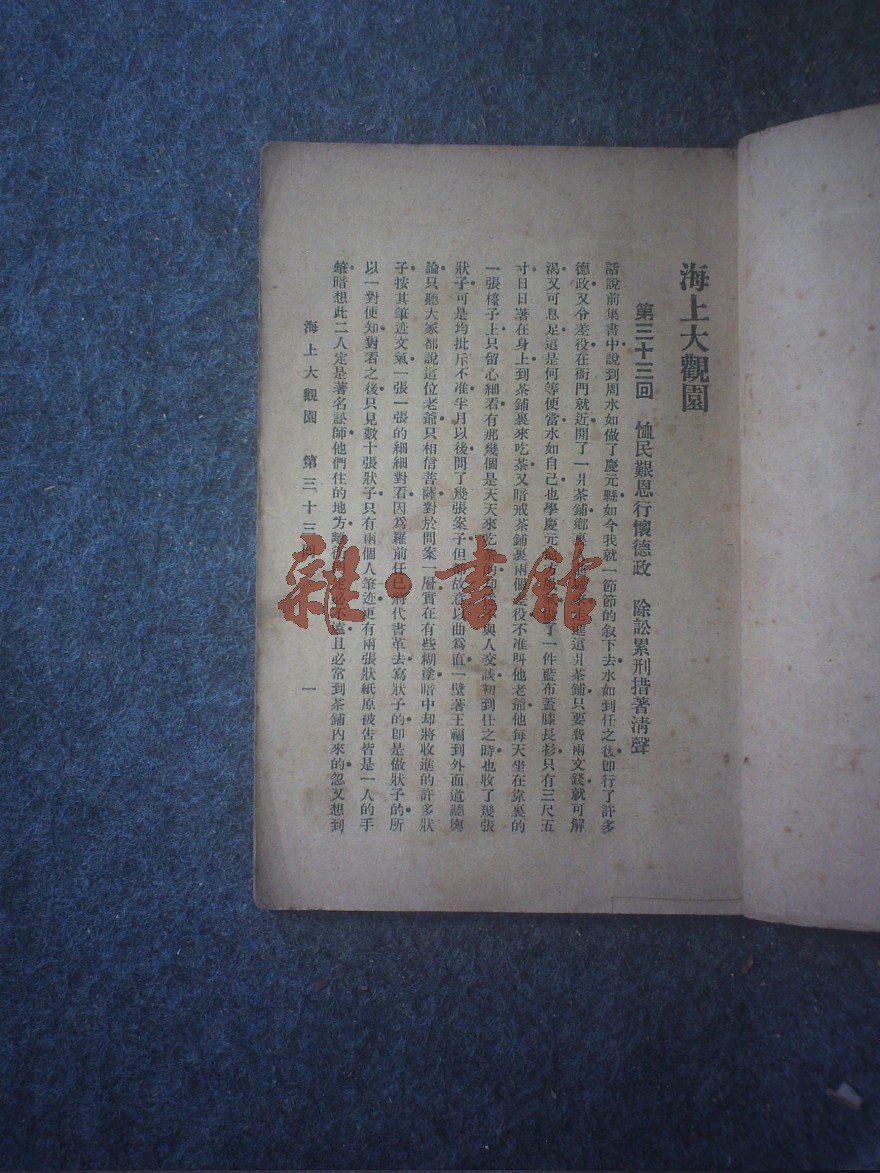 海上大觀園
第三十三回　恤民艱恩行懷德政　除訟累刑措著淸聲
話說前集書中說到周水如做了慶元縣如今我就一節節的叙下去水如到任之後卽行了許多
德政又令差役在衙門就近開了一爿茶鋪鄕裏人進城來走進這爿茶鋪只要費兩文錢就可解
渴又可息足這是何等便當水如自己也學慶元了一件藍布蓋膝長衫只有三尺五
寸日日著在身上到茶鋪裏來吃茶又暗戒茶鋪裏兩個差役不准叫他老爺他每天坐在靠裏的
一張檯子上只留心細看有那幾個是天天來吃的與人交談初到任之時也收了幾張
狀子可是均批斥不准半月以後問了幾張案子但都故意以曲爲直一壁著王福到外面道聽輿
論只聽大家都說這位老爺只相信菩薩對於問案一層實在有些糊塗暗中却將收進的許多狀
子按其筆迹文氣一張一張的細細對看因爲羅前任已將代書革去寫狀子的卽是做狀子的所
以一對便知對看之後只見數十張狀子只有兩個人筆迹更有兩張狀紙原被吿皆是一人的手
筆暗想此二人定是著名訟師他們住的地方離衙門定必不遠且必常到茶鋪內來的忽又想到
海上大觀園　第三十三回　一
雜·書館